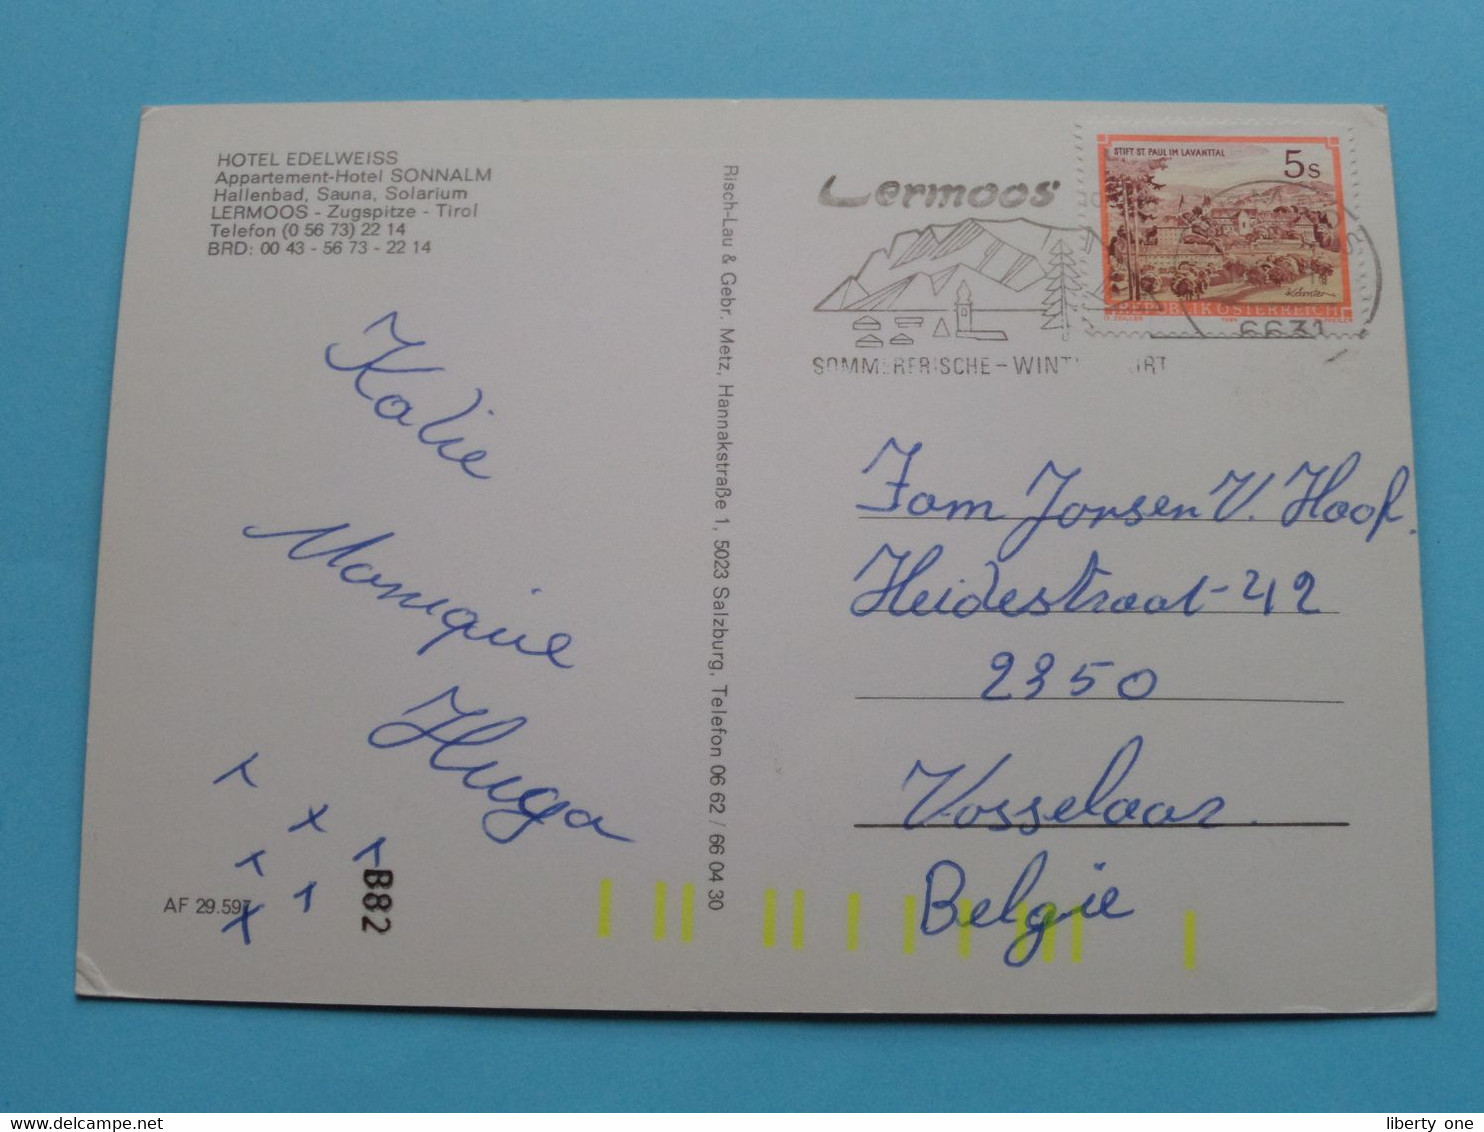 HOTEL EDELWEISS
Appartement-Hotel SONNALM
Hallenbad, Sauna, Solarium
LERMOOS - Zugspitze - Tirol
Telefon (0 56 73) 22 14
BRD: 00 43 - 56 73 - 22 14
Katie
Monique
Hugo
AF 29.597
B82
Risch-Lau & Gebr. Metz, Hannakstraße 1, 5023 Salzburg, Telefon 06 62 / 66 04 30
Lermoos
SOMMERFRISCHE - WINT
STIFT ST. PAUL IM LAVANTTAL
5s
Kärnten
REPUBLIK ÖSTERREICH
6631
Fam Jansen V. Hoof.
Heidestraat - 42
2350
Vosselaar
België
liberty one